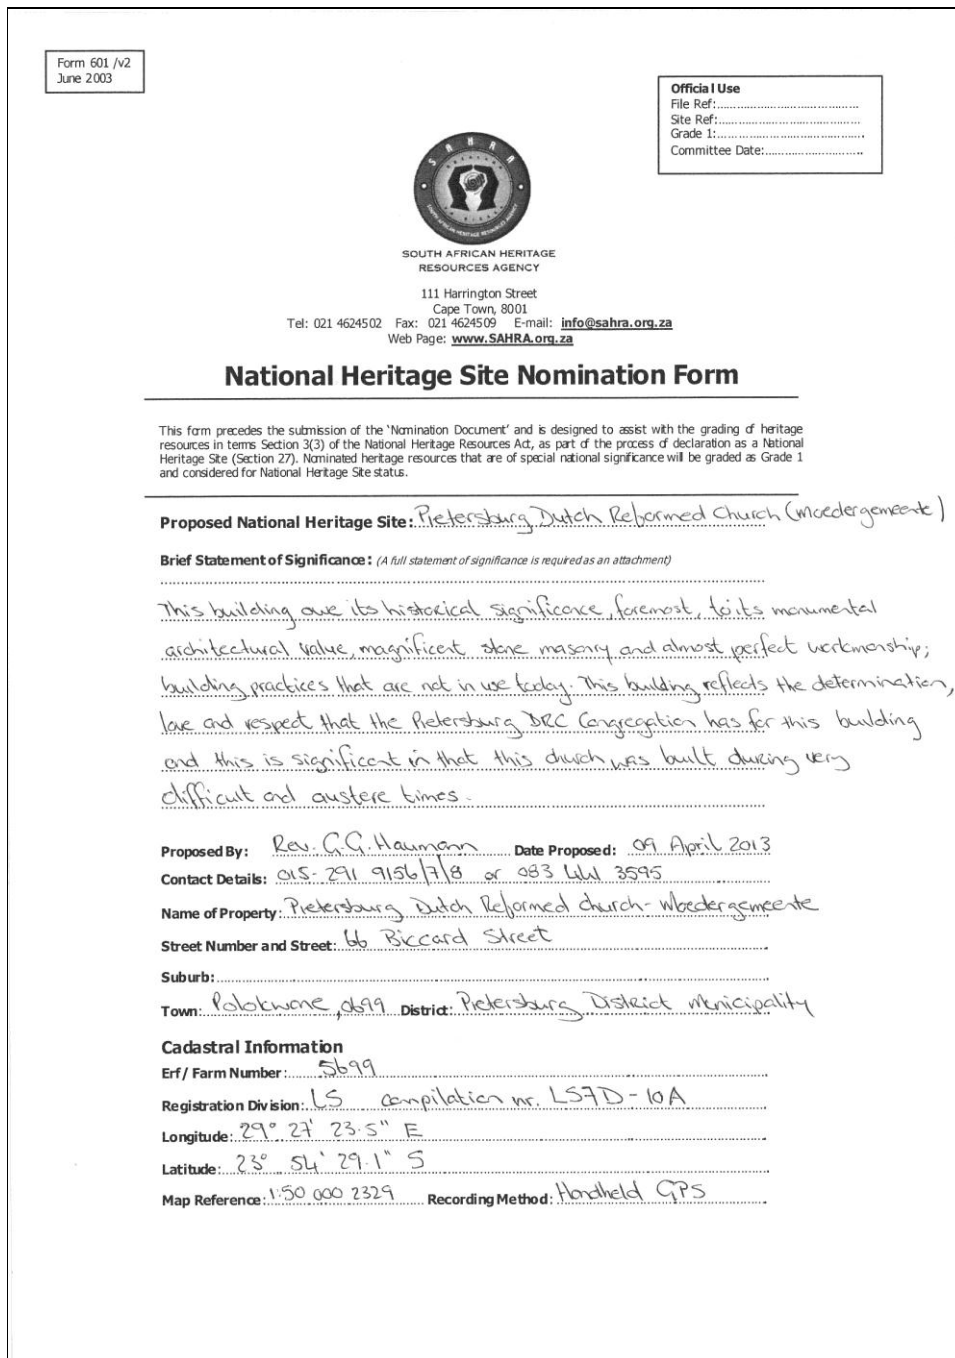 Form 601 /v2
June 2003
Official Use
File Ref:..........................................
Site Ref:..........................................
Grade 1:...........................................
Committee Date:.............................
SAHRA
SOUTH AFRICAN HERITAGE RESOURCES AGENCY
SOUTH AFRICAN HERITAGE
RESOURCES AGENCY
111 Harrington Street
Cape Town, 8001
Tel: 021 4624502 Fax: 021 4624509 E-mail: info@sahra.org.za
Web Page: www.SAHRA.org.za
National Heritage Site Nomination Form
This form precedes the submission of the 'Nomination Document' and is designed to assist with the grading of heritage
resources in terms Section 3(3) of the National Heritage Resources Act, as part of the process of declaration as a National
Heritage Site (Section 27). Nominated heritage resources that are of special national significance will be graded as Grade 1
and considered for National Heritage Site status.
Proposed National Heritage Site: Pietersburg Dutch Reformed Church (Moedergemeente)
Brief Statement of Significance: (A full statement of significance is required as an attachment)
This building owe its historical significance, foremost, to its monumental
architectural value, magnificent stone masonry and almost perfect workmanship;
building practices that are not in use today. This building reflects the determination,
love and respect that the Pietersburg DRC Congregation has for this building
and this is significant in that this church was built during very
difficult and austere times.
Proposed By: Rev. G.G. Haumann Date Proposed: 09 April 2013
Contact Details: 015-291 9156/7/8 or 083 441 3595
Name of Property: Pietersburg Dutch Reformed church - Moedergemeente
Street Number and Street: 66 Biccard Street
Suburb:
Town: Polokwane, 0699 District: Pietersburg District Municipality
Cadastral Information
Erf/ Farm Number: 5699
Registration Division: LS compilation nr. LS7D-10A
Longitude: 29° 27' 23.5" E
Latitude: 23° 54' 29.1" S
Map Reference: 1:50 000 2329 Recording Method: Handheld GPS